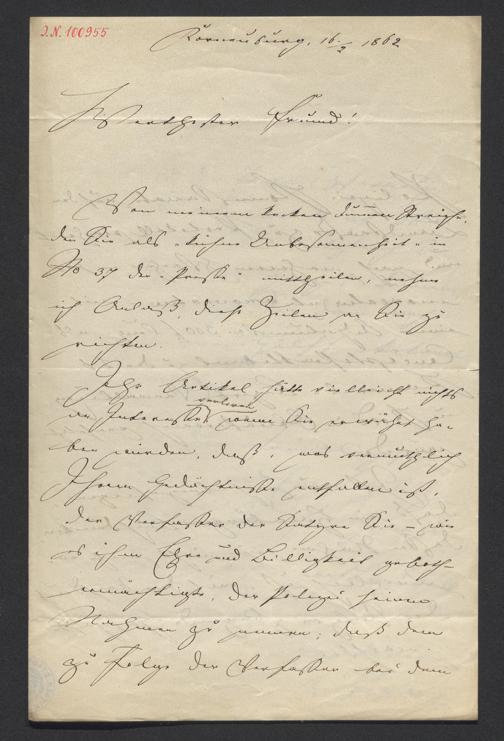 I.N. 100955
Korneuburg, 16/2 1862
Werthester Freund!
Von meinem kecken dummen Streich,
den Sie als "kühne Unbesonnenheit" in
No 37 der "Presse" mittheilen, nehme
ich Anlaß, diese Zeilen an Sie zu
richten.
Ihr Artikel hätte vielleicht nichts
an Interesse verloren wenn Sie erwähnt ha-
ben würden, daß, was vermuthlich
Ihrem Gedächtnisse entfallen ist,
der Verfasser der Satyre Sie – wie
es ihm Ehre und Billigkeit geboth –
ermächtigte, der Polizei seinen
Nahmen zu nennen; daß dem
zu Folge der Verfasser bei dem